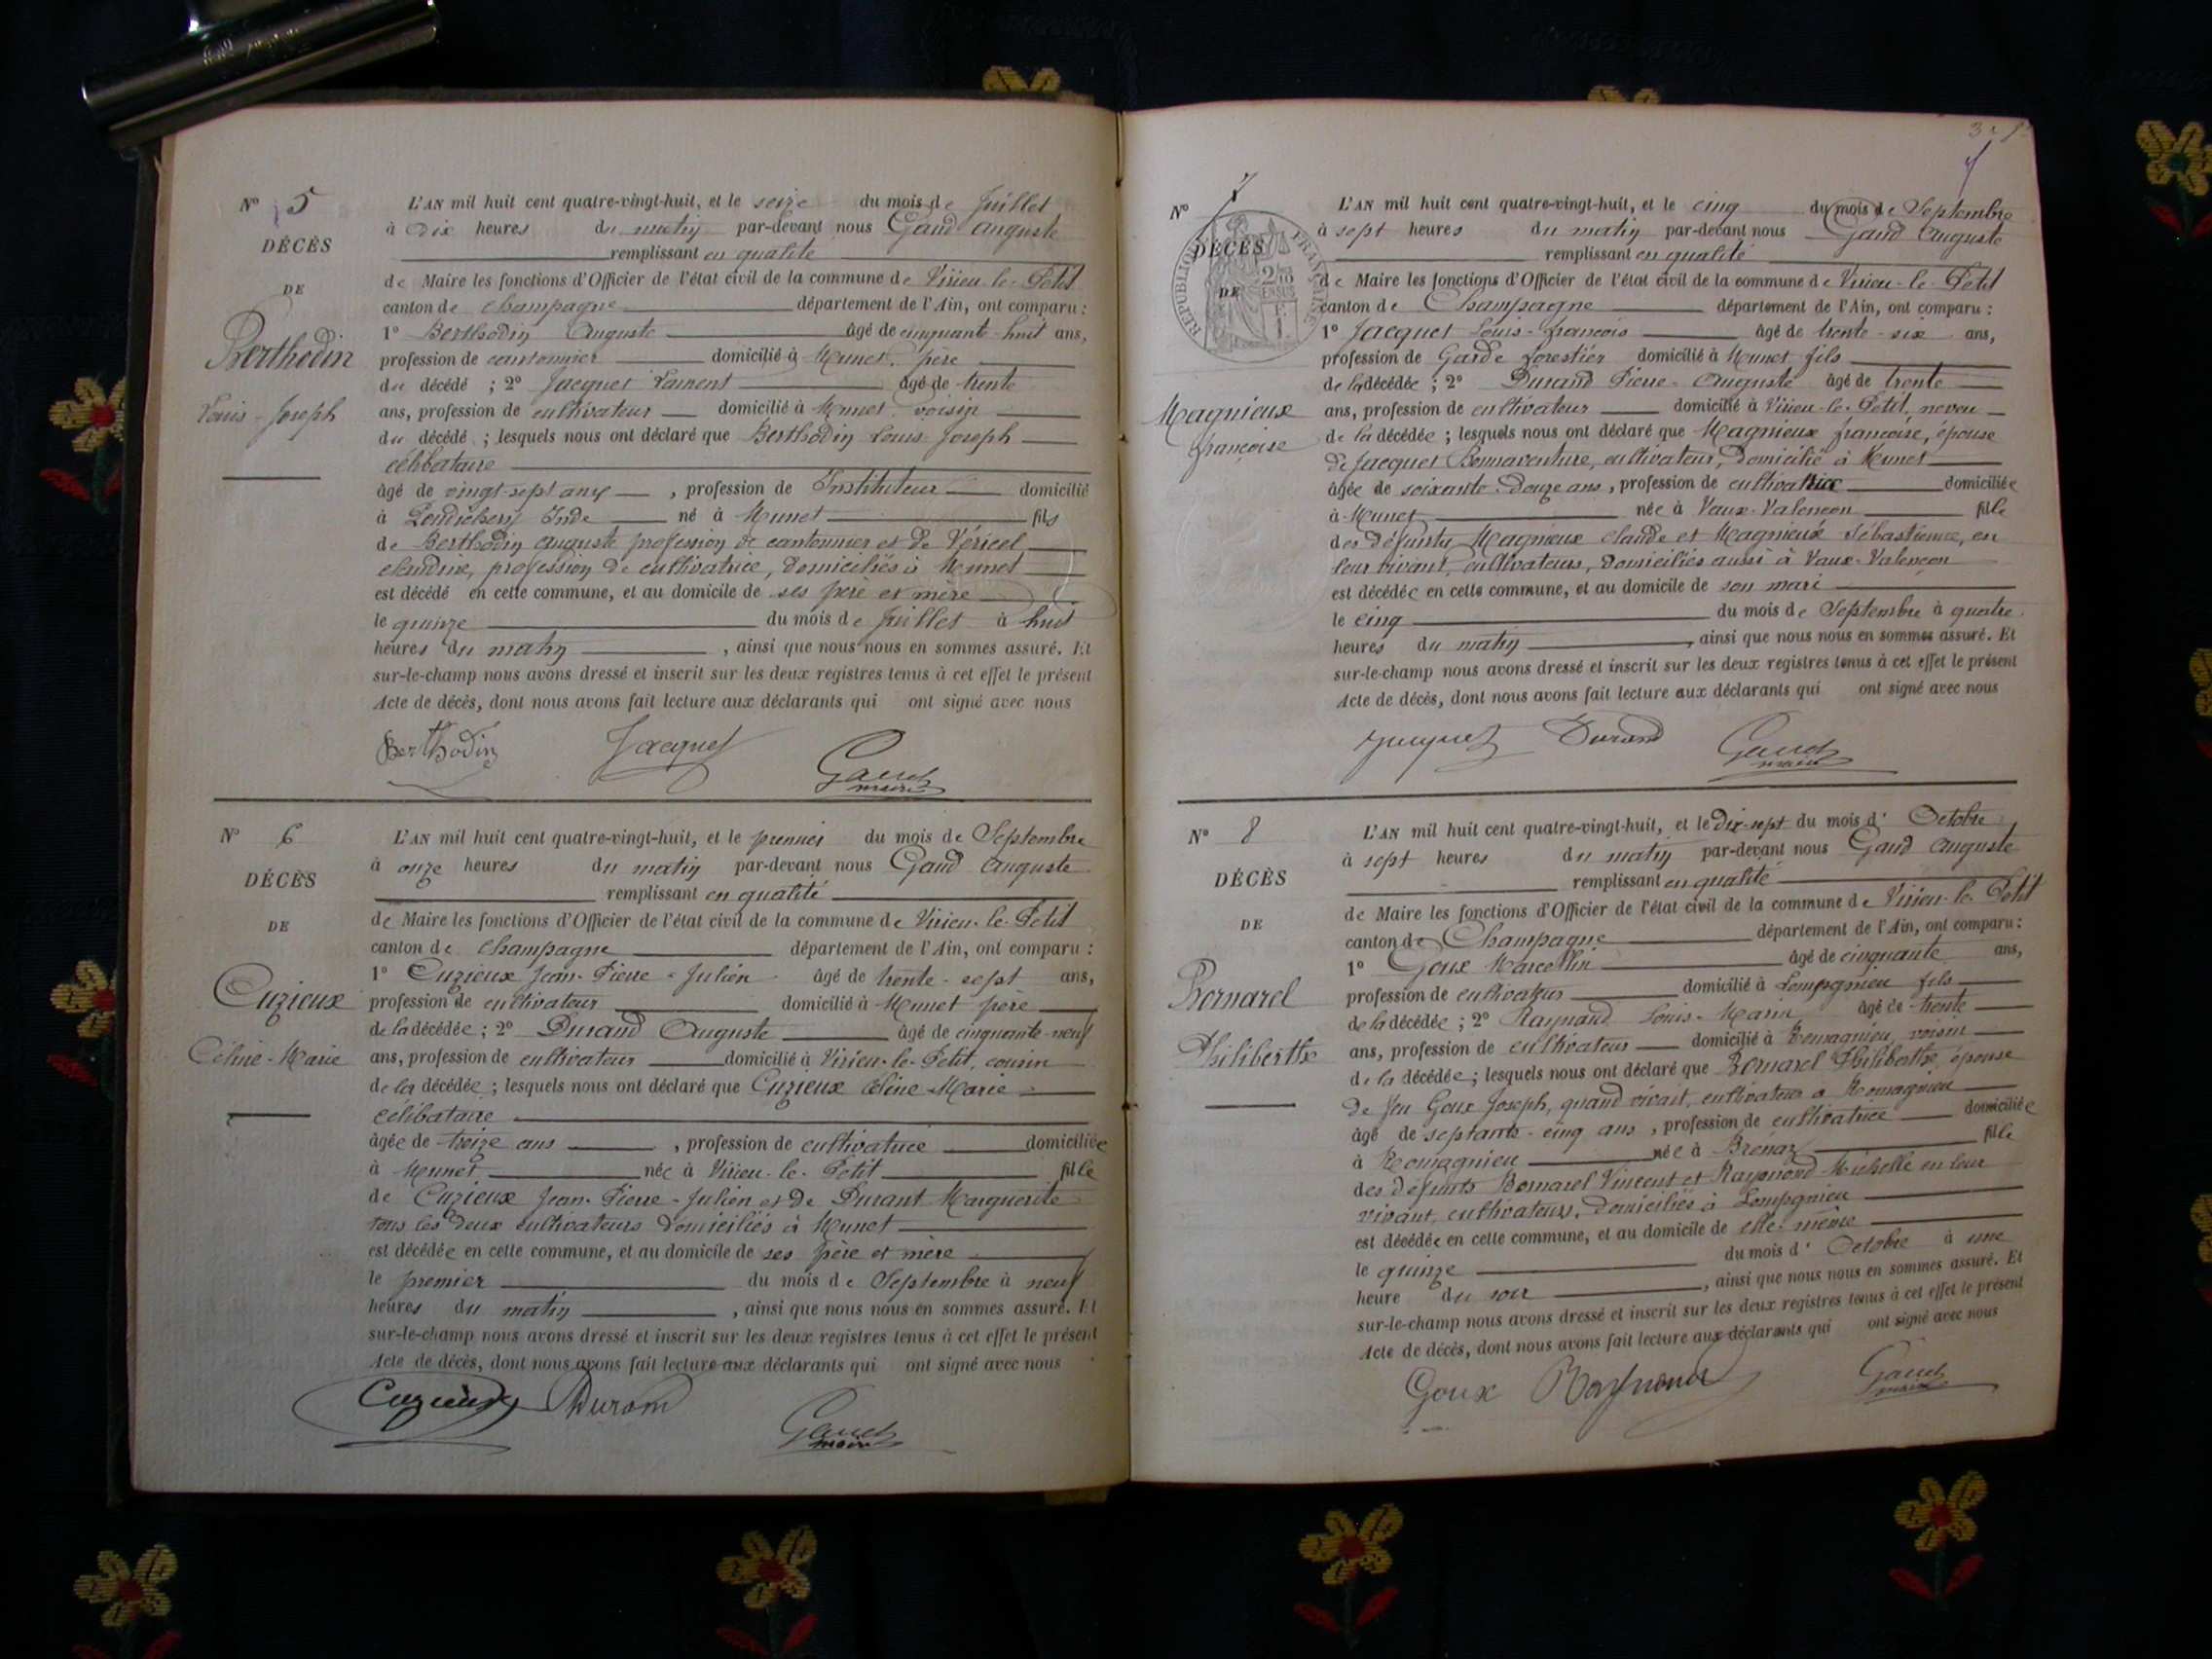 N° 5
DÉCÈS
DE
Berthodin
Louis-Joseph
L'AN mil huit cent quatre-vingt-huit, et le seize du mois de Juillet
à dix heures du matin par-devant nous Gaud Auguste
remplissant en qualité
de Maire les fonctions d'Officier de l'état civil de la commune de Virieu-le-Petit
canton de Champagne département de l'Ain, ont comparu :
1° Berthodin Auguste âgé de cinquante-huit ans,
profession de cantonnier domicilié à Munet, père
du décédé ; 2° Jacquet Laurent âgé de trente
ans, profession de cultivateur domicilié à Munet, voisin
du décédé ; lesquels nous ont déclaré que Berthodin Louis Joseph
célibataire
âgé de vingt-sept ans, profession de Instituteur domicilié
à Pondichery Inde né à Munet fils
de Berthodin Auguste profession de cantonnier et de Véricel
Claudine, profession de cultivatrice, domiciliés à Munet
est décédé en cette commune, et au domicile de ses père et mère
le quinze du mois de Juillet à huit
heures du matin, ainsi que nous nous en sommes assuré. Et
sur-le-champ nous avons dressé et inscrit sur les deux registres tenus à cet effet le présent
Acte de décès, dont nous avons fait lecture aux déclarants qui ont signé avec nous
Berthodin Jacquet Gaud
maire
N° 6
DÉCÈS
DE
Cuzieux
Céline-Marie
L'AN mil huit cent quatre-vingt-huit, et le premier du mois de Septembre
à onze heures du matin par-devant nous Gaud Auguste
remplissant en qualité
de Maire les fonctions d'Officier de l'état civil de la commune de Virieu-le-Petit
canton de Champagne département de l'Ain, ont comparu :
1° Cuzieux Jean-Pierre-Julien âgé de trente-sept ans,
profession de cultivateur domicilié à Munet père
de la décédée ; 2° Durand Auguste âgé de cinquante-neuf
ans, profession de cultivateur domicilié à Virieu-le-Petit, cousin
de la décédée ; lesquels nous ont déclaré que Cuzieux Céline Marie
célibataire
âgée de treize ans, profession de cultivatrice domiciliée
à Munet née à Virieu-le-Petit fille
de Cuzieux Jean-Pierre-Julien et de Durant Marguerite
tous les deux cultivateurs domiciliés à Munet
est décédée en cette commune, et au domicile de ses père et mère
le premier du mois de Septembre à neuf
heures du matin, ainsi que nous nous en sommes assuré. Et
sur-le-champ nous avons dressé et inscrit sur les deux registres tenus à cet effet le présent
Acte de décès, dont nous avons fait lecture aux déclarants qui ont signé avec nous
Cuzieux Durand
Gaud
maire
N° 7
DÉCÈS
DE
RÉPUBLIQUE FRANÇAISE
Magnieux
françoise
L'AN mil huit cent quatre-vingt-huit, et le cinq du mois de Septembre
à sept heures du matin par-devant nous Gaud Auguste
remplissant en qualité
de Maire les fonctions d'Officier de l'état civil de la commune de Virieu-le-Petit
canton de Champagne département de l'Ain, ont comparu :
1° Jacquet Louis-françois âgé de trente-six ans,
profession de Garde forestier domicilié à Munet fils
de la décédée ; 2° Durand Pierre-Auguste âgé de trente
ans, profession de cultivateur domicilié à Virieu-le-Petit, neveu
de la décédée ; lesquels nous ont déclaré que Magnieux françoise, épouse
de Jacquet Bonnaventure, cultivateur, domicilié à Munet
âgée de soixante-douze ans, profession de cultivatrice domiciliée
à Munet née à Vaux-Valençon fille
des défunts Magnieux Claude et Magnieux Sébastienne, en
leur vivant, cultivateurs, domiciliés aussi à Vaux-Valençon
est décédée en cette commune, et au domicile de son mari
le cinq du mois de Septembre à quatre
heures du matin, ainsi que nous nous en sommes assuré. Et
sur-le-champ nous avons dressé et inscrit sur les deux registres tenus à cet effet le présent
Acte de décès, dont nous avons fait lecture aux déclarants qui ont signé avec nous
Jacquet Durand Gaud
maire
N° 8
DÉCÈS
DE
Bornarel
Philiberthe
L'AN mil huit cent quatre-vingt-huit, et le dix-sept du mois d'Octobre
à sept heures du matin par-devant nous Gaud Auguste
remplissant en qualité
de Maire les fonctions d'Officier de l'état civil de la commune de Virieu-le-Petit
canton de Champagne département de l'Ain, ont comparu :
1° Goux Marcellin âgé de cinquante ans,
profession de cultivateur domicilié à Lompgnieu fils
de la décédée ; 2° Raynaud Louis-Marin âgé de trente
ans, profession de cultivateur domicilié à Romagnieu, voisin
de la décédée ; lesquels nous ont déclaré que Bornarel Philiberthe, épouse
de feu Goux Joseph, quand vivait, cultivateur à Romagnieu
âgé de septante-cinq ans, profession de cultivatrice domiciliée
à Romagnieu née à Brénaz fille
des défunts Bornarel Vincent et Raymond Michelle en leur
vivant, cultivateurs, domiciliés à Lompgnieu
est décédée en cette commune, et au domicile de elle-même
le quinze du mois d'Octobre à une
heure du soir, ainsi que nous nous en sommes assuré. Et
sur-le-champ nous avons dressé et inscrit sur les deux registres tenus à cet effet le présent
Acte de décès, dont nous avons fait lecture aux déclarants qui ont signé avec nous
Goux Raynaud Gaud
maire